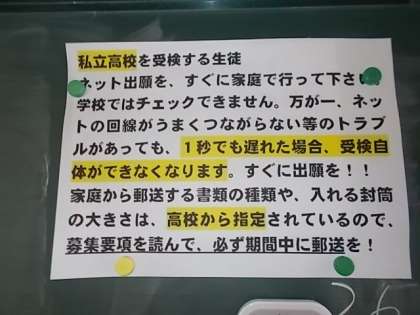 私立高校を受検する生徒
ネット出願を、すぐに家庭で行って下さい
学校ではチェックできません。万が一、ネッ
トの回線がうまくつながらない等のトラブ
ルがあっても、１秒でも遅れた場合、受検自
体ができなくなります。すぐに出願を！！
家庭から郵送する書類の種類や、入れる封筒
の大きさは、高校から指定されているので、
募集要項を読んで、必ず期間中に郵送を！